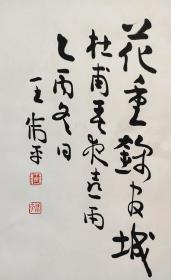 花重錦官城
杜甫春夜喜雨
乙丙冬日
王衛平